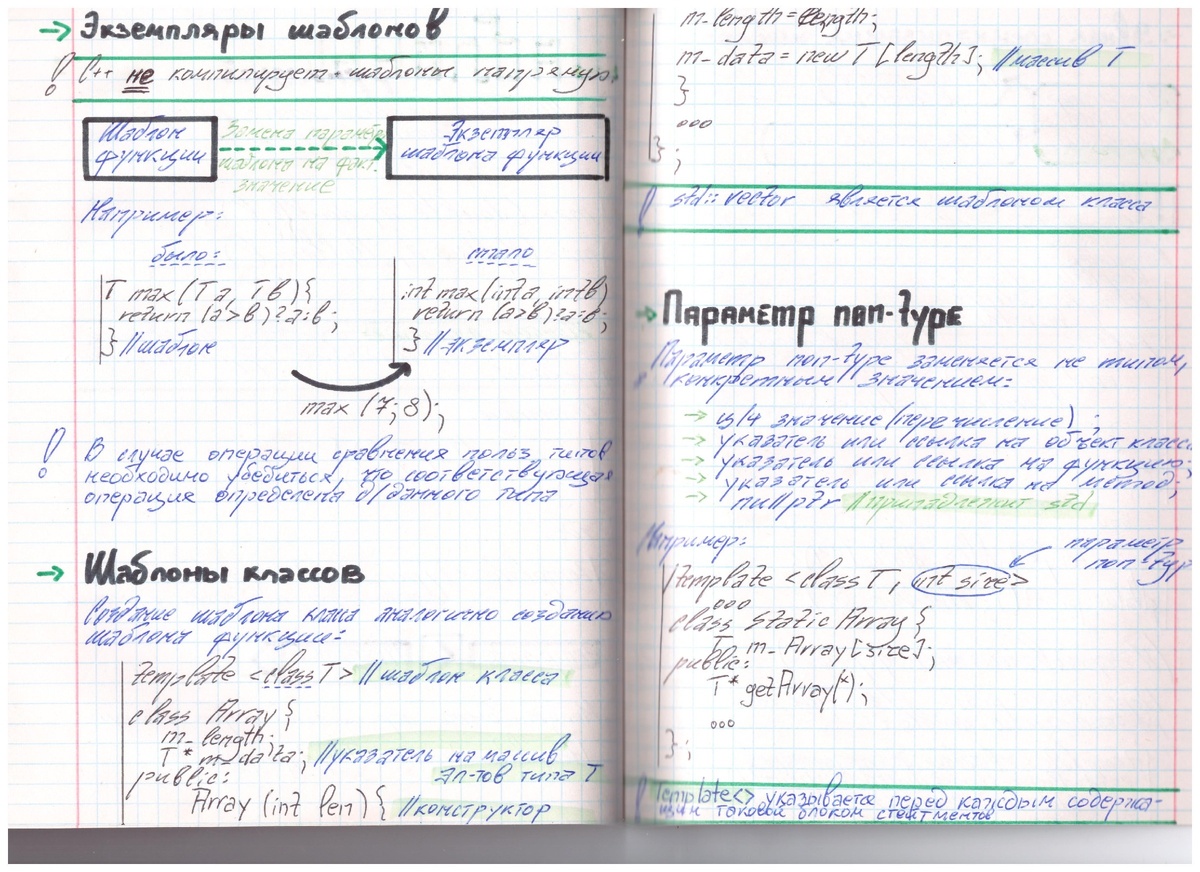 → Экземпляры шаблонов
! C++ не компилирует шаблоны напрямую
Шаблон функции
Замена параметр шаблона на факт. значение
Экземпляр шаблона функции
Например:
было:
T max(T a, T b){
return (a>b)?a:b;
} //шаблон
стало
int max(int a, int b)
return (a>b)?a:b;
} //экземпляр
max (7; 8);
! В случае операции сравнения польз. типов
необходимо убедиться, что соответствующая
операция определена д/данного типа
→ Шаблоны классов
Создание шаблона класса аналогично созданию
шаблона функции:
template <class T> //шаблон класса
class Array {
m_length;
T * m_data; //указатель на массив
эл-тов типа T
public:
Array (int len) { //конструктор
m_length = length;
m_data = new T [length]; //массив T
}
ooo
};
! std::vector является шаблоном класса
→ Параметр non-type
Параметр non-type заменяется не типом,
конкретным значением:
→ ц/ч значение (перечисление);
→ указатель или ссылка на объект класс
→ указатель или ссылка на функцию;
→ указатель или ссылка на метод;
→ nullptr //принадлежит std
Например:
параметр
non-typ
template <class T, int size>
ooo
class StaticArray {
T m_Array[size];
public:
T* getArray(*);
ooo
};
! Template<> указывается перед каждым содержа-
щим таковой блоком стейтментов